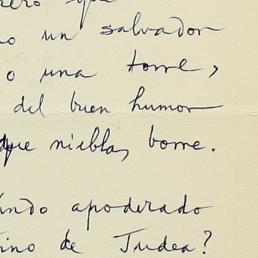 ero que
no un salvador
o una torre,
del buen humor
que niebla, borre.
ando apoderado
ino de Judea?